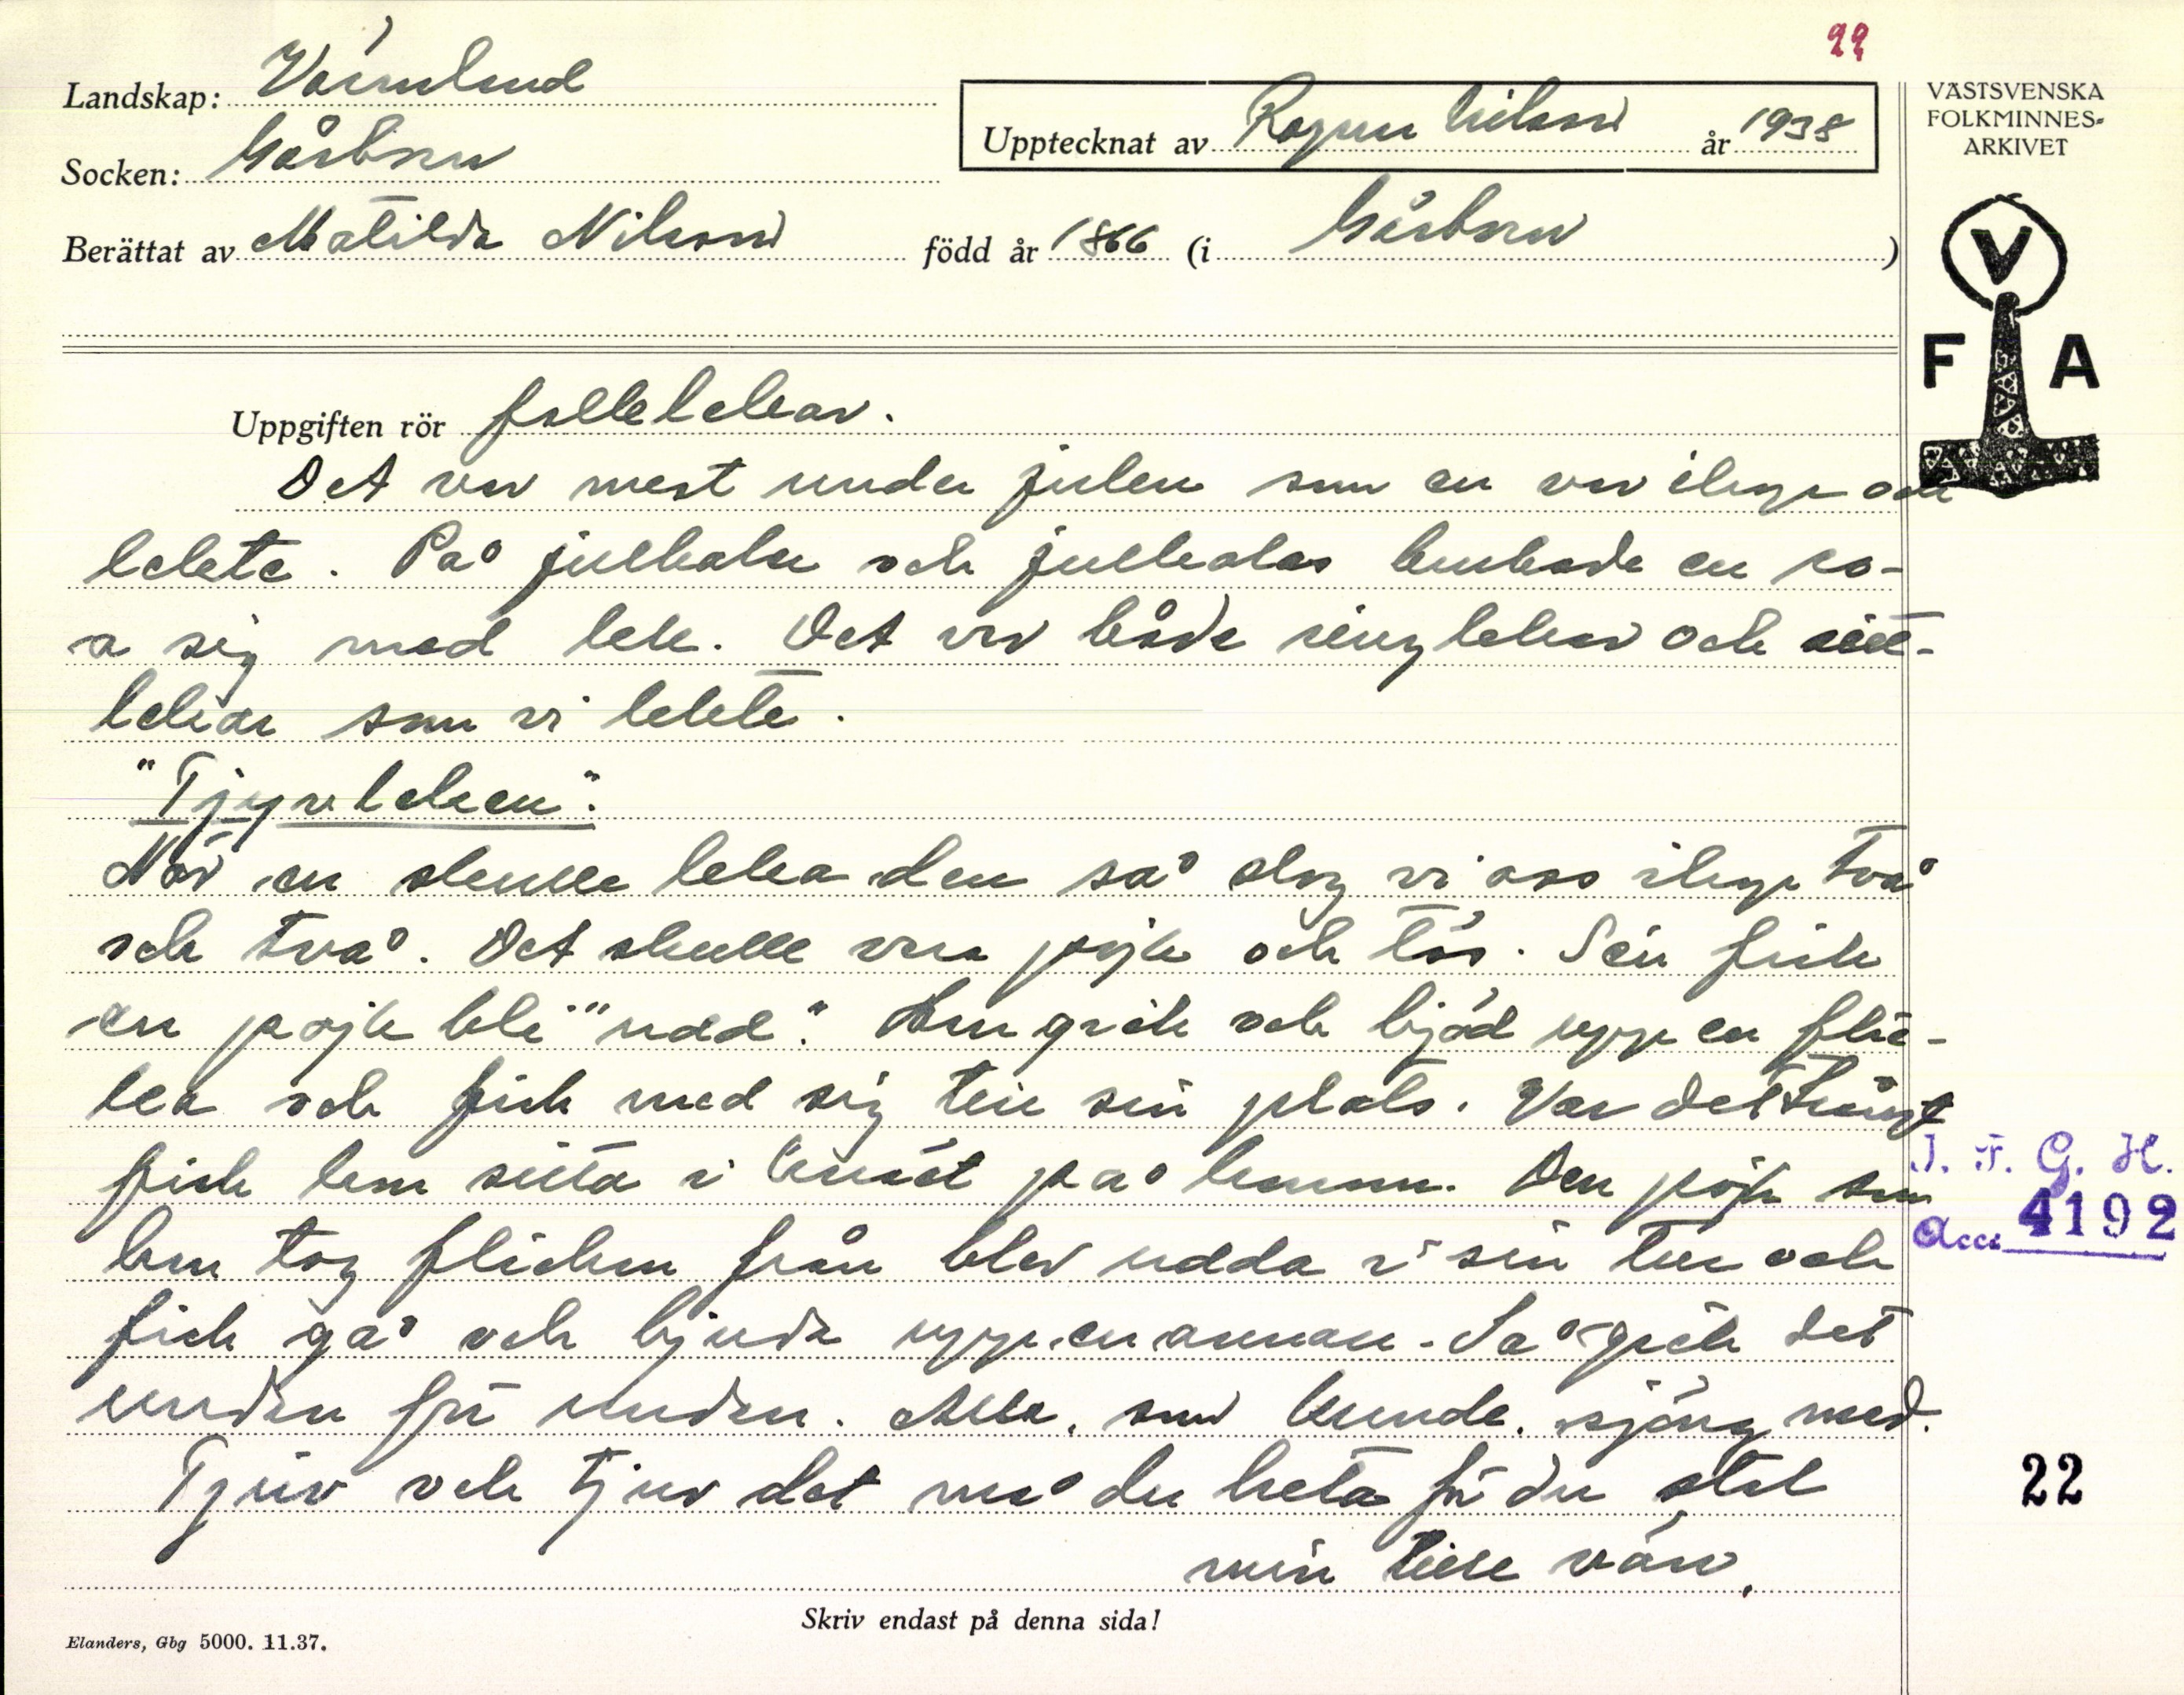 22
Landskap: Värmland
Socken: Gåsborn
Upptecknat av Ragnar Nilsson år 1938
Berättat av Matilda Nilsson född år 1866 (i Gåsborn)
VÄSTSVENSKA
FOLKMINNES-
ARKIVET
V
F A
Uppgiften rör folklekar.
Det var mest under julen som en var ihop och
lekte. På julkalas och julkalas brukade en ro-
a sig med lek. Det var både ringlekar och sitt-
lekar som vi lekte.
"Tjyvleken".
När en skulle leka den så slog vi oss ihop två
och två. Det skulle vara pojk och tös. Sen fick
en pojk bli "udd". Han gick och bjöd upp en flic-
ka och fick med sig till sin plats. Var det trångt
fick hon sitta i knät på honom. Den pojk som
han tog flickan från blev udda i sin tur och
fick gå och bjuda upp en annan. Så gick det
unden för unden. Alla, som kunde, sjöng med.
Tjuv och tjuv det må du heta för du stal
min lille vän.
I. F. G. H.
Acc. 4192
22
Skriv endast på denna sida!
Elanders, Gbg 5000. 11.37.